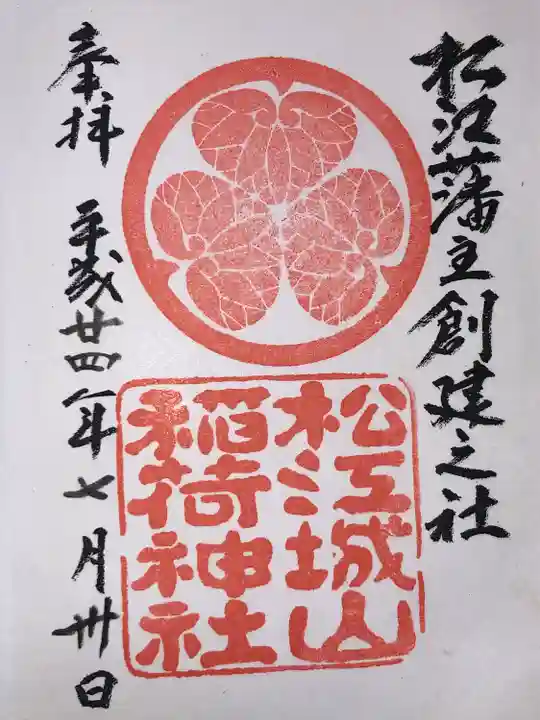 松江藩主創建之社
松江城山
稲荷神社
奉拝 平成廿四年七月卅日